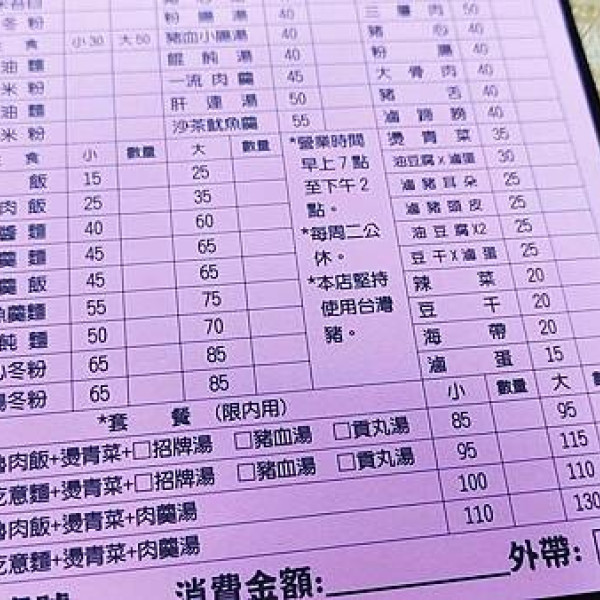 冬粉
粉腸湯 40
三層肉 50
食 小30 大50 豬血小腸湯 40
豬心 40
油麵
餛飩湯 40
粉腸 40
米粉
一流肉羹 45
大骨肉 40
油麵
肝連湯 50
豬舌 40
米粉
沙茶魷魚羹 55
滷蹄膀 40
食 小 數量 大 數量
燙青菜 35
飯 15 25
油豆腐x滷蛋 30
肉飯 25 35
滷豬耳朵 25
醬麵 40 60
滷豬頭皮 25
羹麵 45 65
油豆腐X2 25
羹飯 45 65
豆干X滷蛋 25
魚羹麵 55 75
辣菜 20
飩麵 50 70
豆干 20
心冬粉 65 85
海帶 20
腸冬粉 65 85
滷蛋 15
*營業時間
早上7點
至下午2
點。
*每周二公
休。
*本店堅持
使用台灣
豬。
*套餐(限內用) 小 數量 大
魯肉飯+燙青菜+□招牌湯 □豬血湯 □貢丸湯 85 95
乾意麵+燙青菜+□招牌湯 □豬血湯 □貢丸湯 95 115
魯肉飯+燙青菜+肉羹湯 100 110
乾意麵+燙青菜+肉羹湯 110 130
消費金額: 外帶: